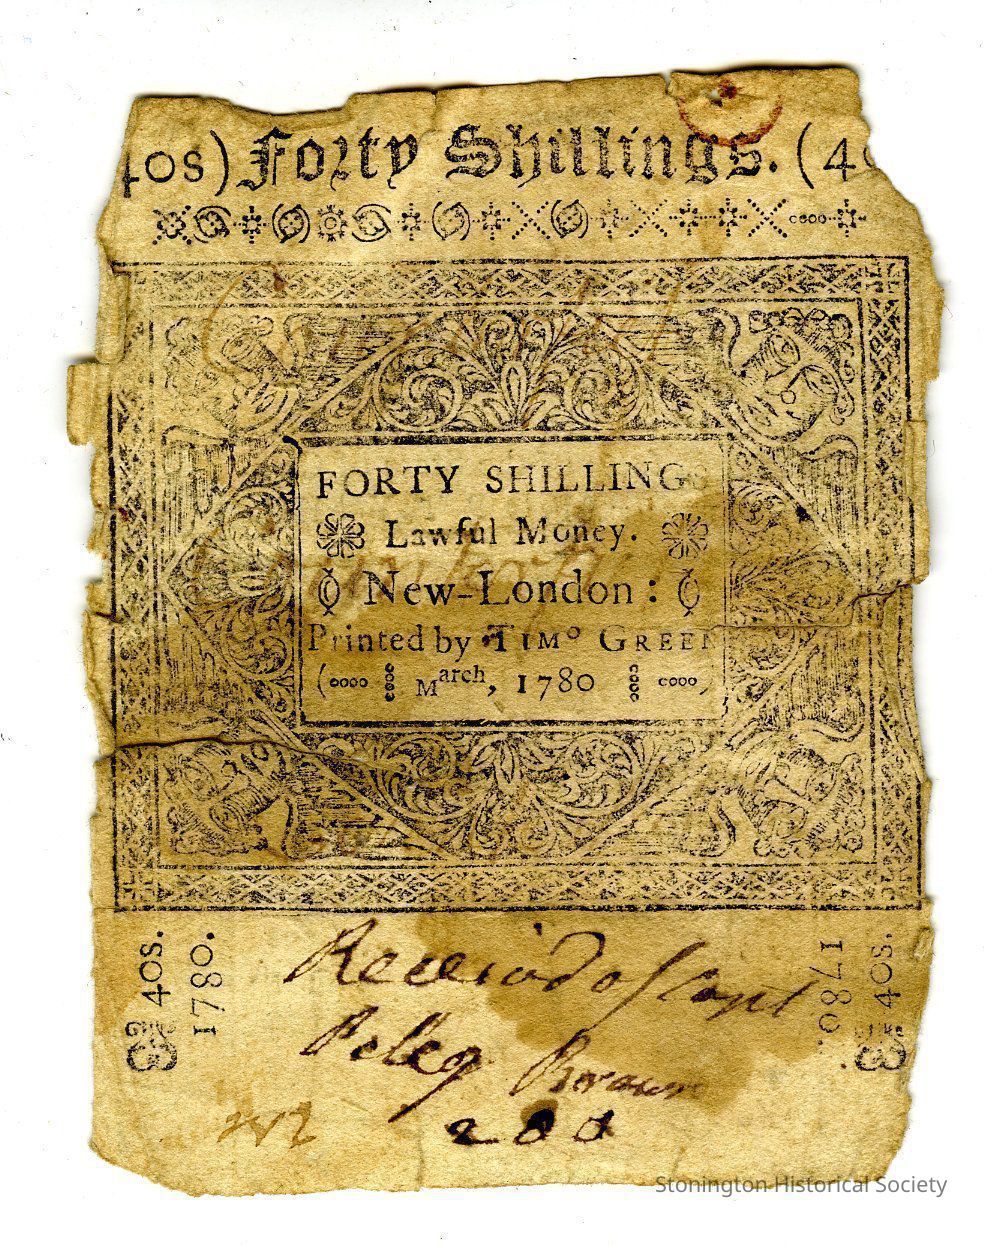 40s) Forty Shillings. (4
FORTY SHILLINGS
Lawful Money.
New-London:
Printed by TIMo GREEN
(March, 1780
40s.
1780.
1780.
40s.
Received of Capt
Peleg Brown
Stonington Historical Society